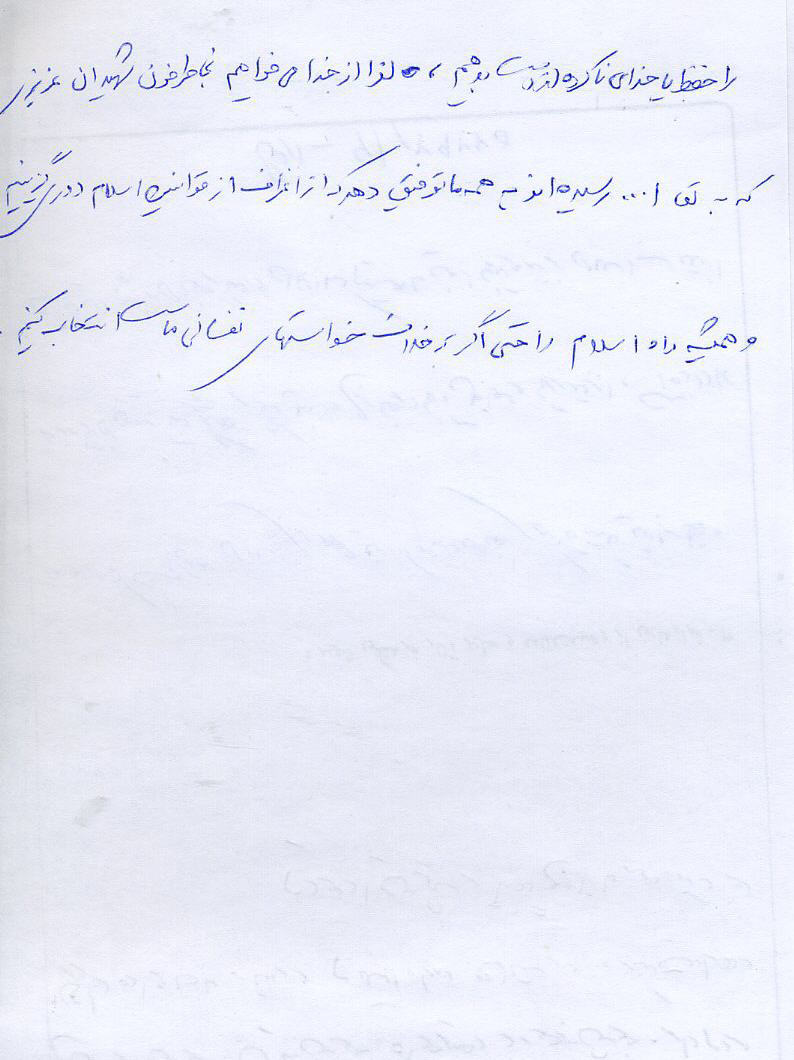 را حفظ یا خدای ناکرده از دست بدهیم ، لذا از خدا می خواهیم بخاطر خون شهیدان عزیزی
که به لقاء ا... رسیده اند به همه ما توفیق دهد که از انحراف از قوانین اسلام دوری گزینیم
و همیشه راه اسلام را حتی اگر بر خلاف خواستهای نفسانی ماست انتخاب کنیم .